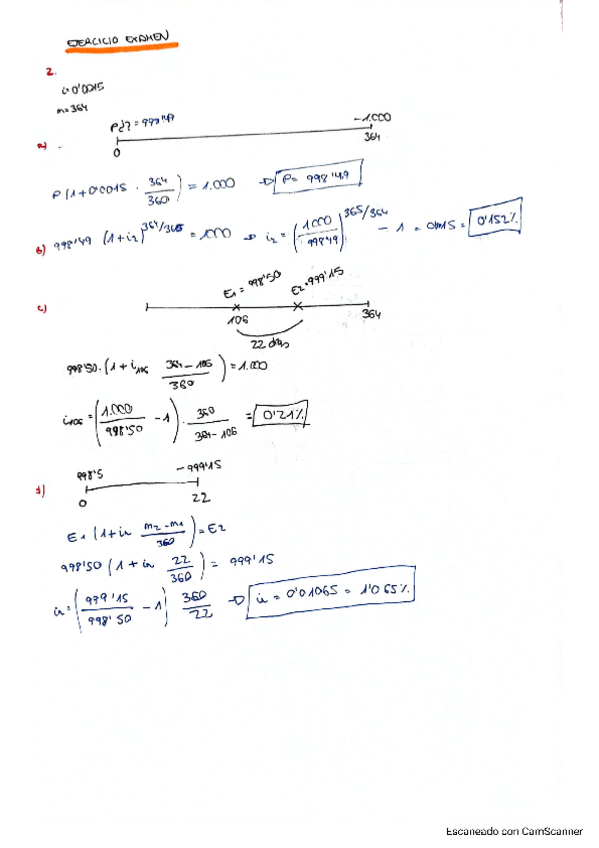 EJERCICIO EXAMEN
2.
i=0'0015
m=364
P¿?=998'49 -1.000
a) 0 364
P(1+0'0015 · 364/360) = 1.000 ⇒ P= 998'49
b) 998'49 (1+i2)^364/365 = 1000 ⇒ i2 = (1.000/998'49)^365/364 - 1 = = 0'152%
c) E1=998'50 E2=999'15
106 364
22 días
998'50·(1+i106 364-106/360) = 1.000
i106 = (1.000/998'50 - 1)· 360/364-106 = 0'21%
998'5 -999'15
d) 0 22
E1 (1+ir m2-m1/360) = E2
998'50 (1+ir 22/360) = 999'15
ir = (999'15/998'50 - 1) 360/22 ⇒ ir = 0'01065 = 1'065%
Escaneado con CamScanner